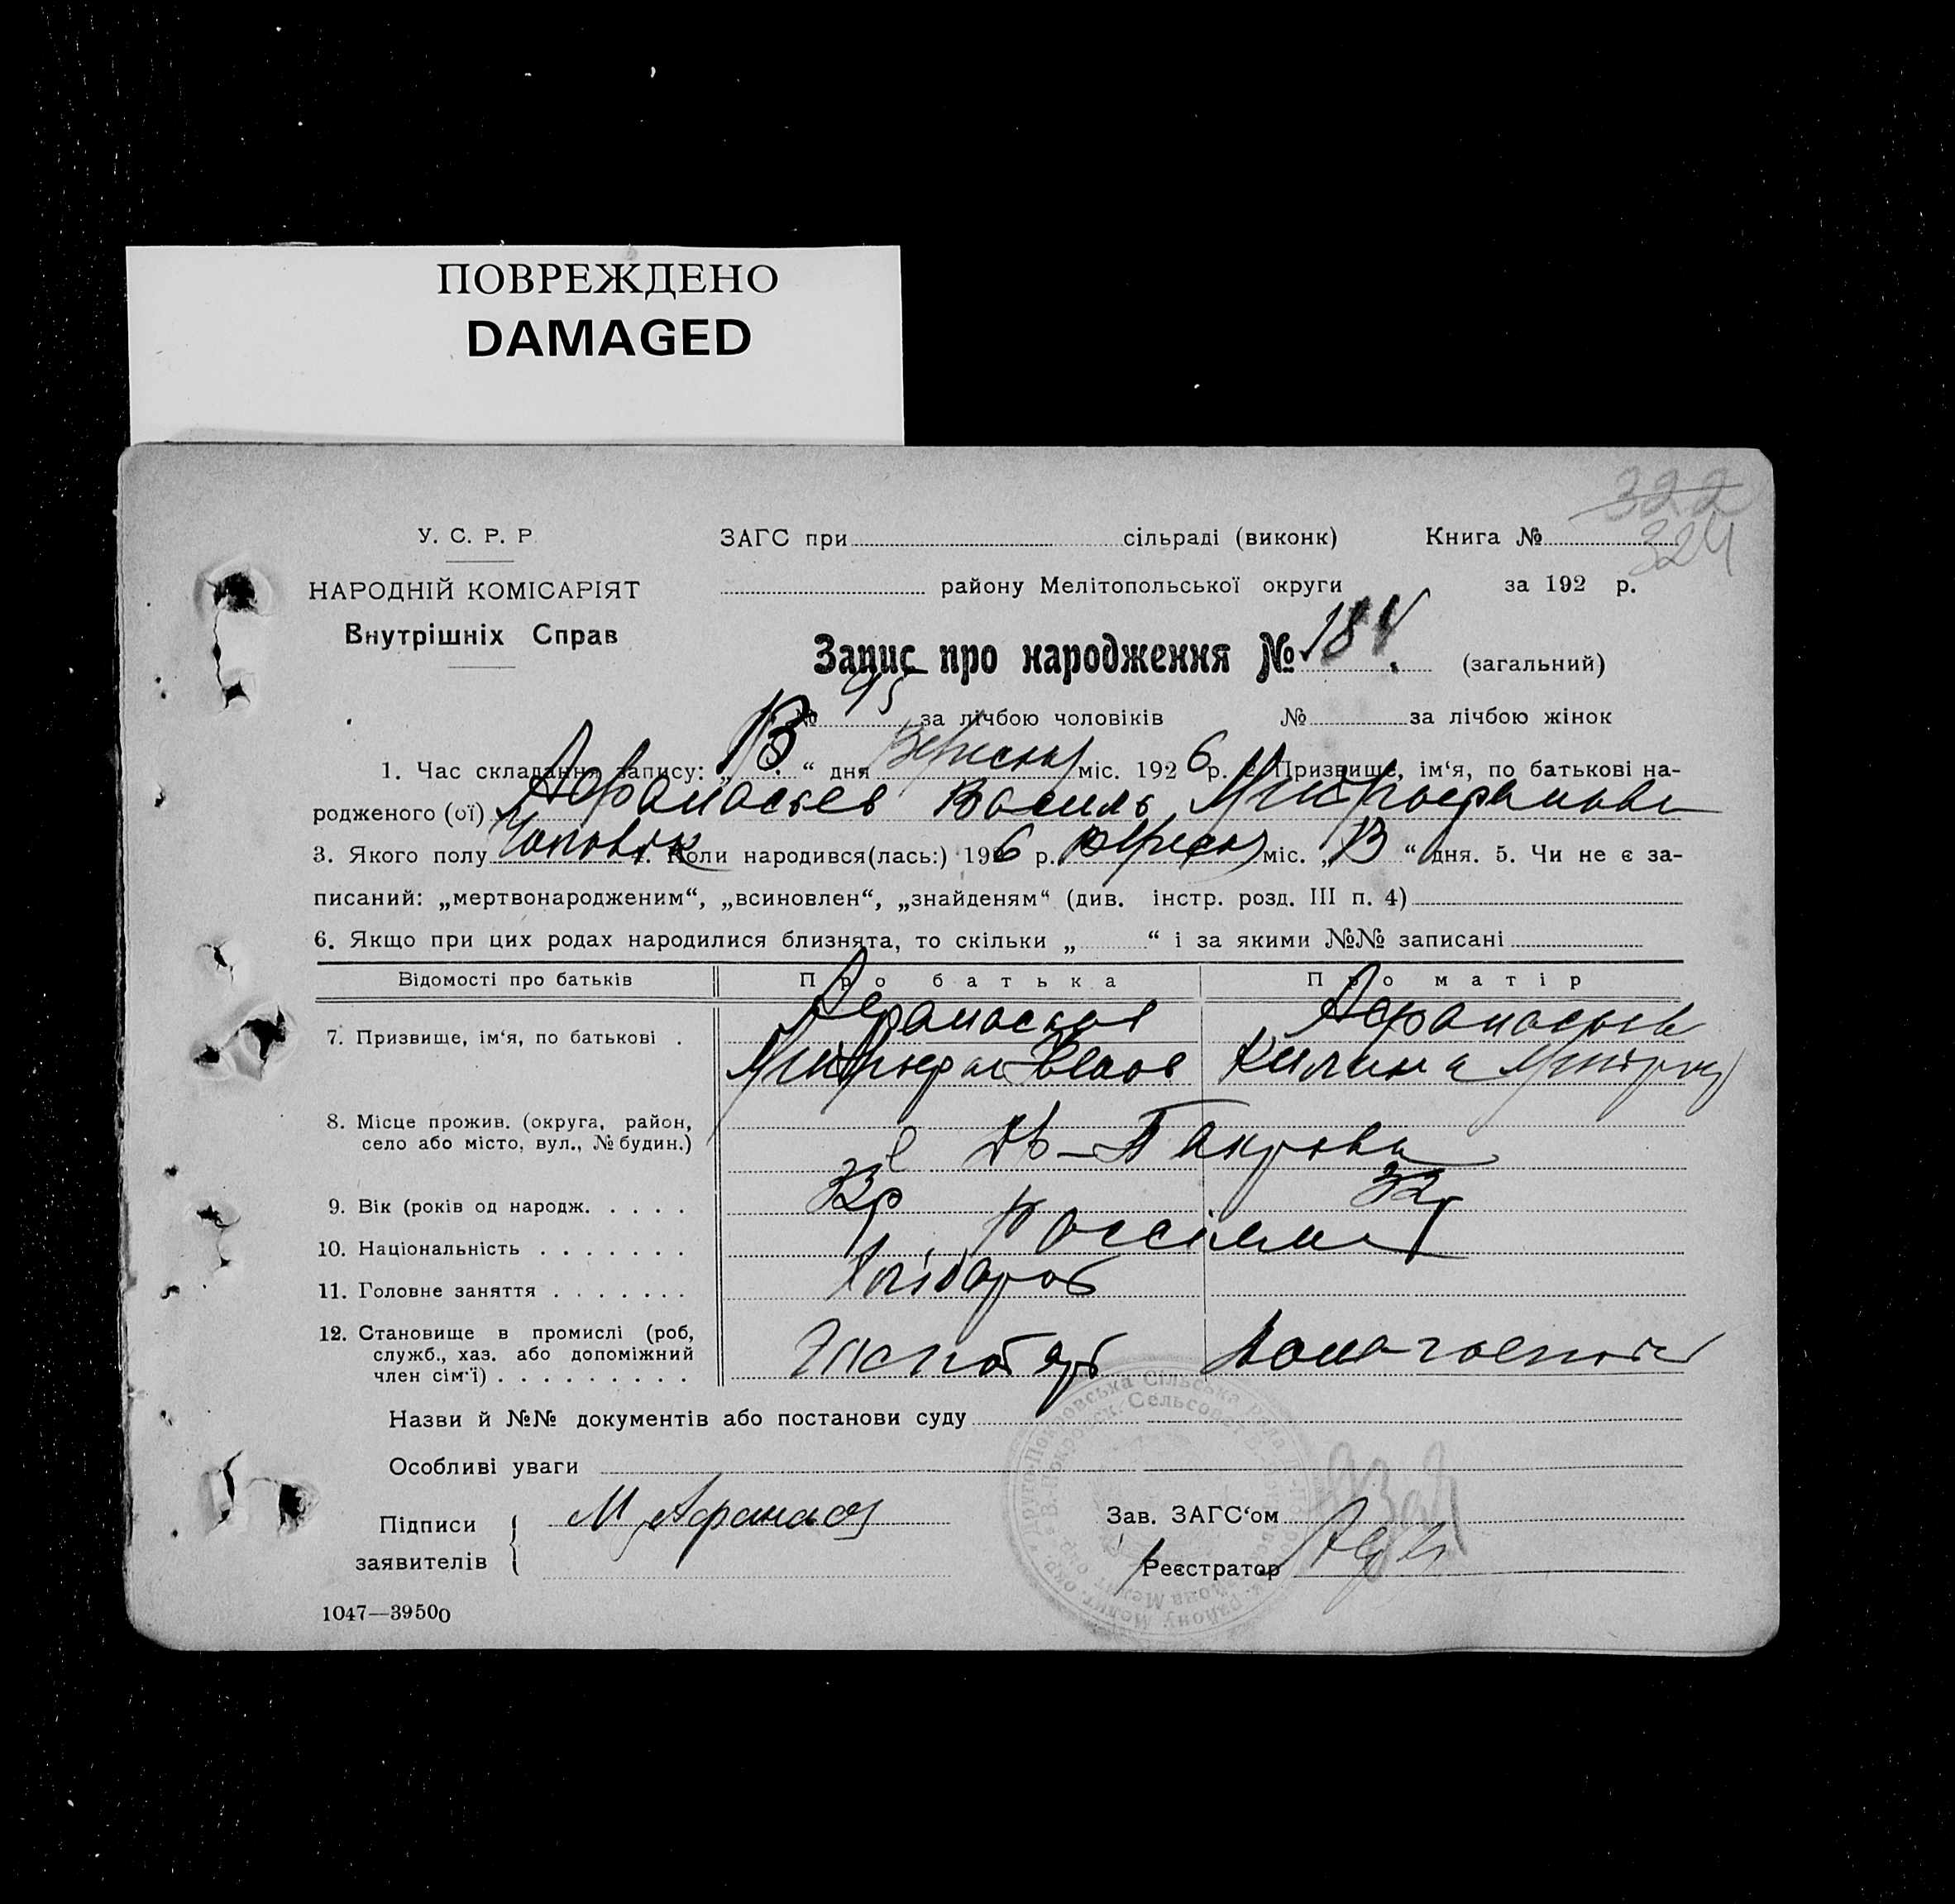 ПОВРЕЖДЕНО
DAMAGED
322
324
У. С. Р. Р
ЗАГС при сільраді (виконк) Книга №
НАРОДНІЙ КОМІСАРІЯТ
району Мелітопольської округи за 192 р.
Внутрішніх Справ
Запис про народження № 184 (загальний)
№ 95 за лічбою чоловіків № за лічбою жінок
1. Час складання запису: „ 13 “ дня Вересня міс. 192 6 р. 2. Призвище, ім‘я, по батькові на-
родженого (ої) Афанасьев Василь Митрофанов
3. Якого полу Чоловік 4. Коли народився(лась:) 192 6 р. Вересня міс. „ 13 “ дня. 5. Чи не є за-
писаний: „мертвонародженим“, „всиновлен“, „знайденям“ (див. інстр. розд. III п. 4)
6. Якщо при цих родах народилися близнята, то скільки „ “ і за якими №№ записані
Відомості про батьків Про батька Про матір
7. Призвище, ім‘я, по батькові . Афанасьев Афанасьев
Митрофан Иванов Килина
8. Місце прожив. (округа, район,
село або місто, вул., № будин.) с Др-Покровка
9. Вік (років од народж. . . . . 32р 32р
10. Національність . . . . . . .
11. Головне заняття . . . . . . . Хлібороб
12. Становище в промислі (роб,
служб., хаз. або допоміжний
член сім‘ї) . . . . . . . . .
Назви й №№ документів або постанови суду
Особливі уваги
Підписи М Афанась
заявителів
Зав. ЗАГС‘ом
Реєстратор
1047—39500